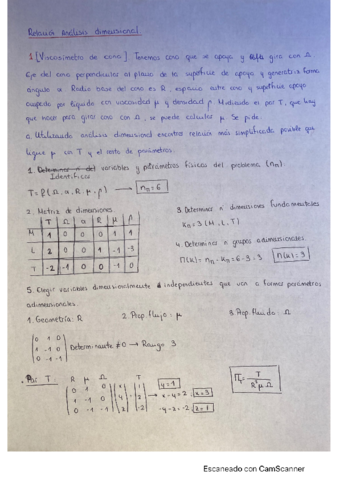 Relación Análisis dimensional
1. [Viscosímetro de cono] Tenemos cono que se apoya y gira con Ω.
Eje del cono perpendicular al plano de la superficie de apoyo y generatriz forma
ángulo α. Radio base del cono es R, espacio entre cono y superficie
ocupado por líquido con viscosidad μ y densidad ρ. Midiendo el par T, que hay
que hacer para girar cono con Ω, se puede calcular μ. Se pide:
a. Utilizando análisis dimensional encontrar relación más simplificada posible que
ligue μ con T y el resto de parámetros.
1. Identificar variables y parámetros físicos del problema (nn)
T = f(Ω, α, R, μ, ρ) → nn = 6
2. Matriz de dimensiones
T Ω α R μ ρ
M 1 0 0 0 1 1
L 2 0 0 1 -1 -3
T -2 -1 0 0 -1 0
3. Determinar n dimensiones fundamentales
Kn = 3 (M, L, T)
4. Determinar n grupos adimensionales
Π(k) = nn - Kn = 6 - 3 = 3 Π(k) = 3
5. Elegir variables dimensionalmente independientes que van a formar parámetros
adimensionales.
1. Geometría: R 2. Prop. flujo: μ 3. Prop. fluido: Ω
0 1 0
1 -1 0
0 -1 -1
Determinante ≠ 0 → Rango 3
T R μ Ω T
0 1 0 x 1
1 -1 0 y = 2
0 -1 -1 z -2
y = 1
x - y = 2; x = 3
-y - z = -2; z = 1
Π1 = T / R³ μ Ω
Escaneado con CamScanner